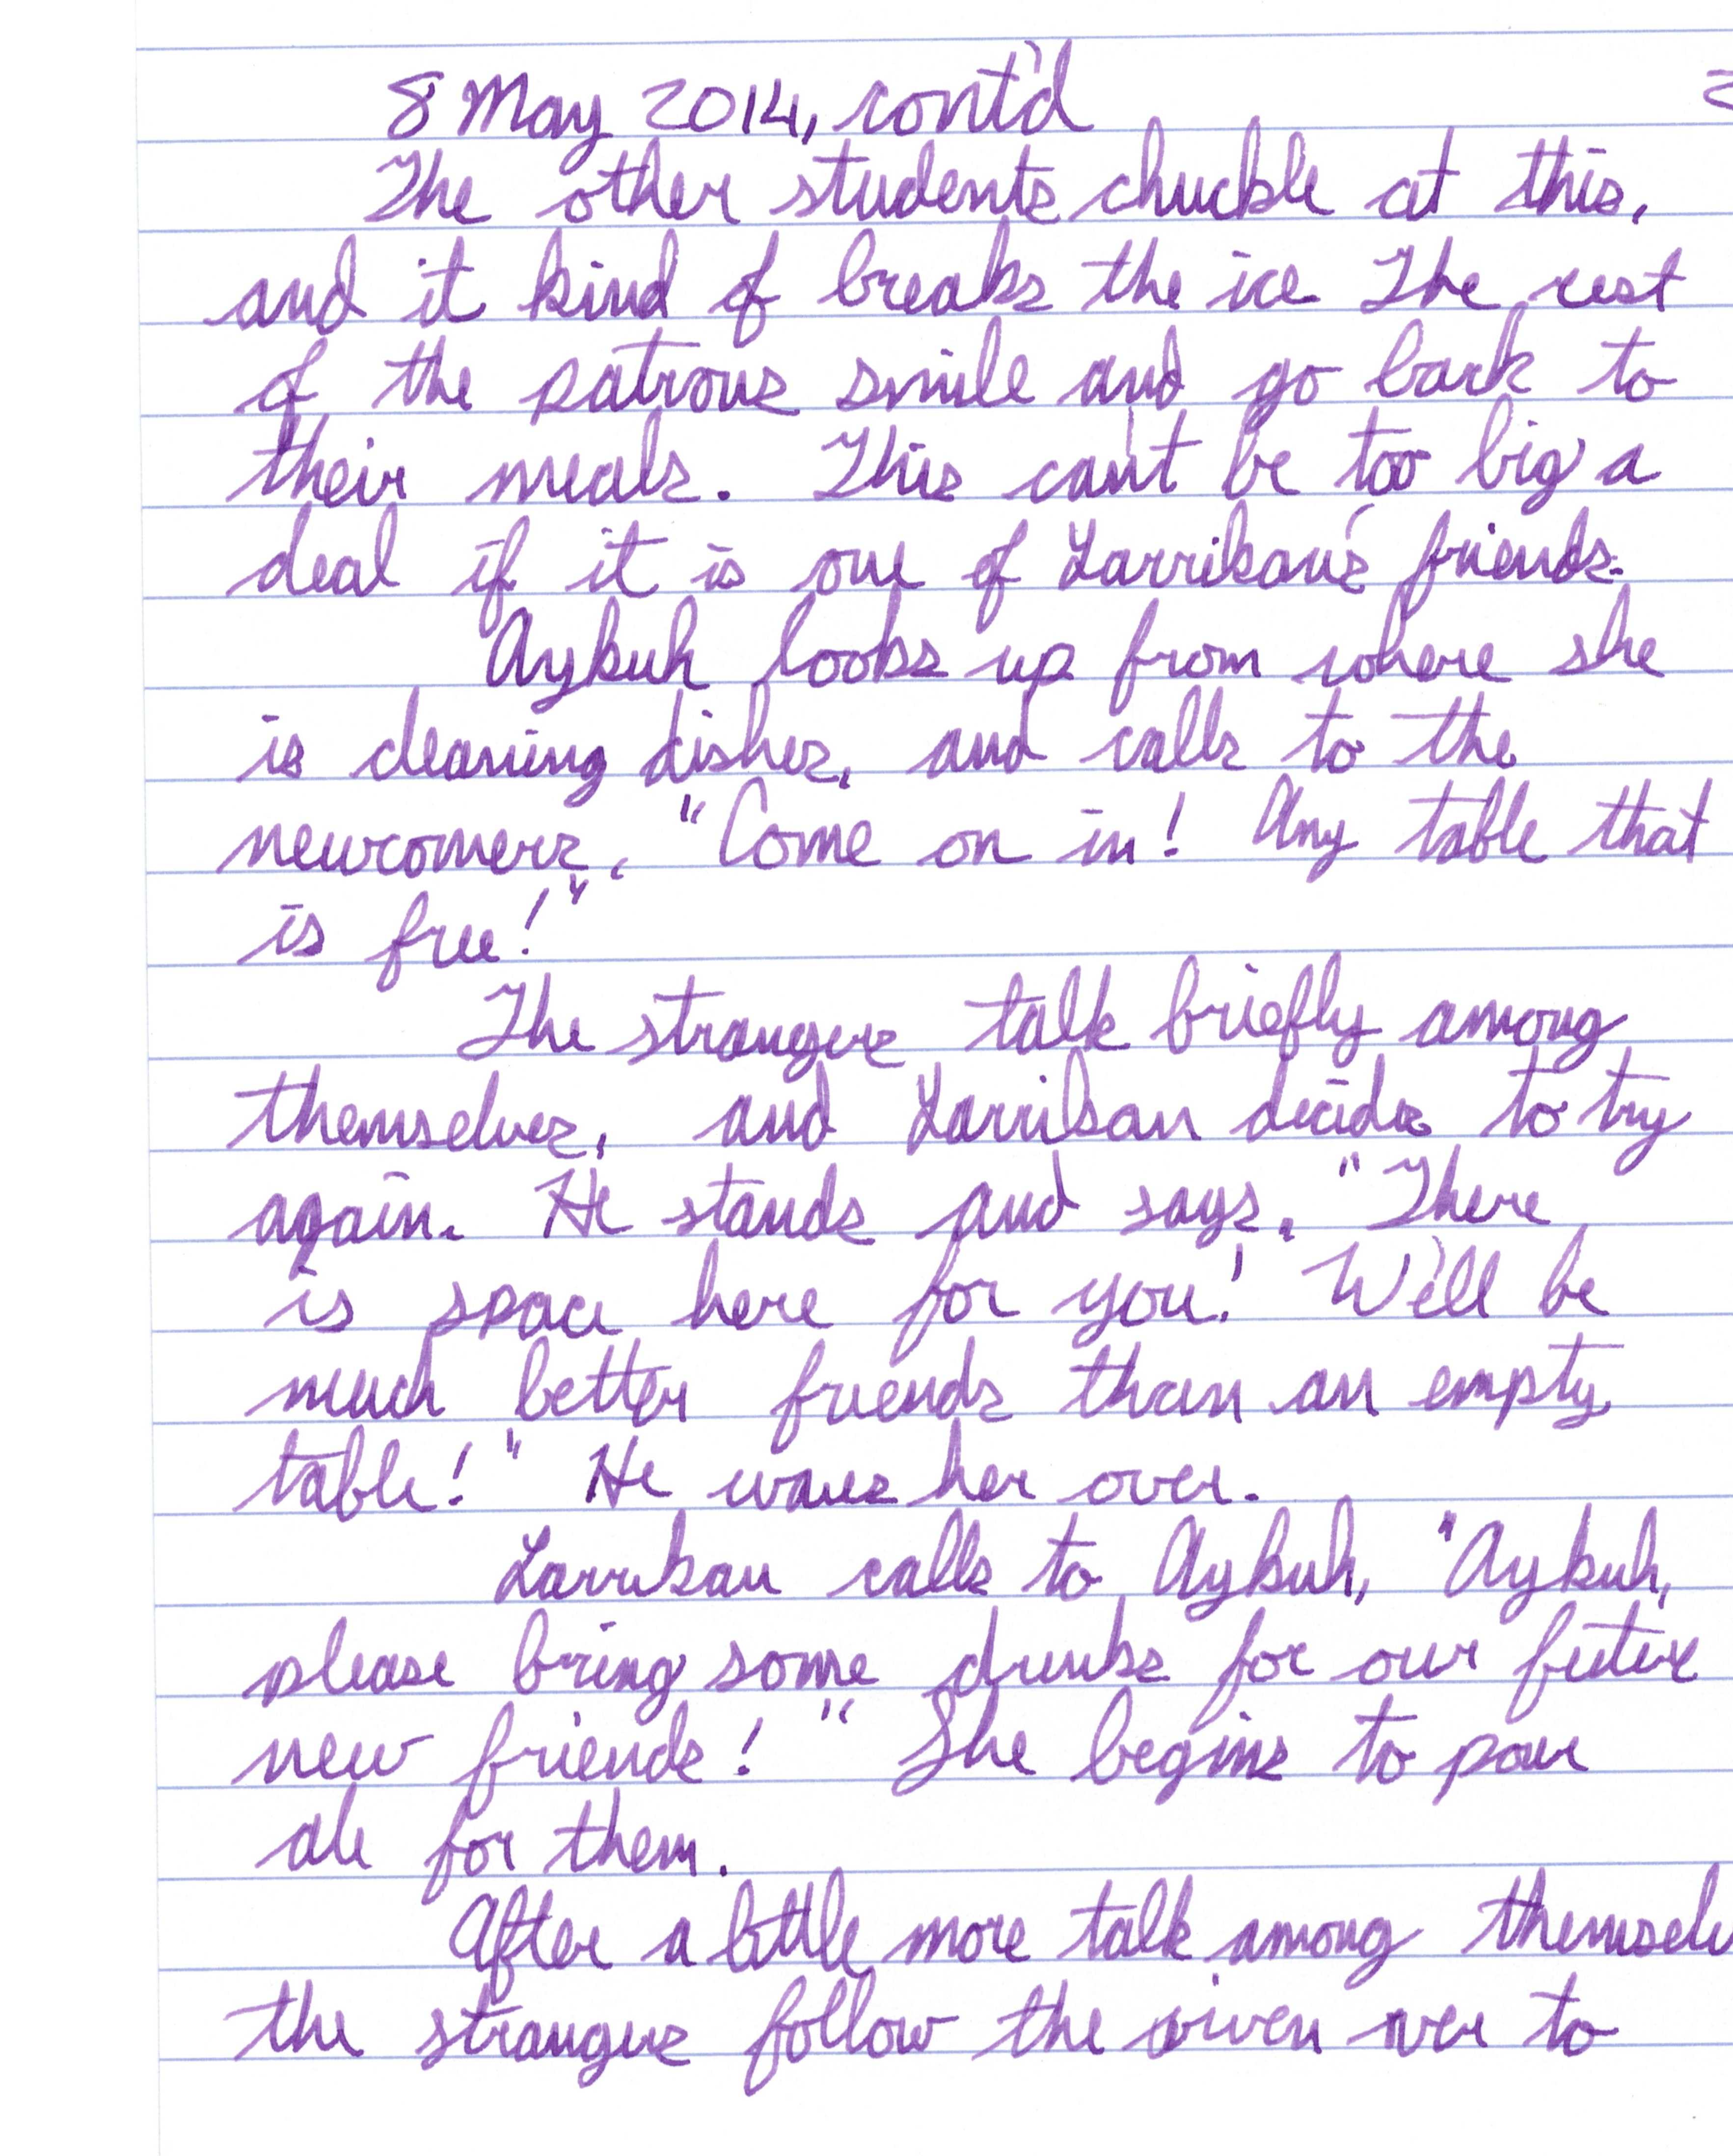 8 May 2014, cont'd
The other students chuckle at this,
and it kind of breaks the ice The rest
of the patrons smile and go back to
their meals. This can't be too big a
deal if it is one of Larrikan's friends.
Aykuh looks up from where she
is cleaning dishes, and calls to the
newcomers, "Come on in! Any table that
is free!"
The strangers talk briefly among
themselves, and Larrikan decides to try
again. He stands and says, "There
is space here for you! We'll be
much better friends than an empty
table!" He waves her over.
Larrikan calls to Aykuh, "Aykuh,
please bring some drinks for our future
new friends!" She begins to pour
ale for them.
After a little more talk among themselv
the strangers follow the over to